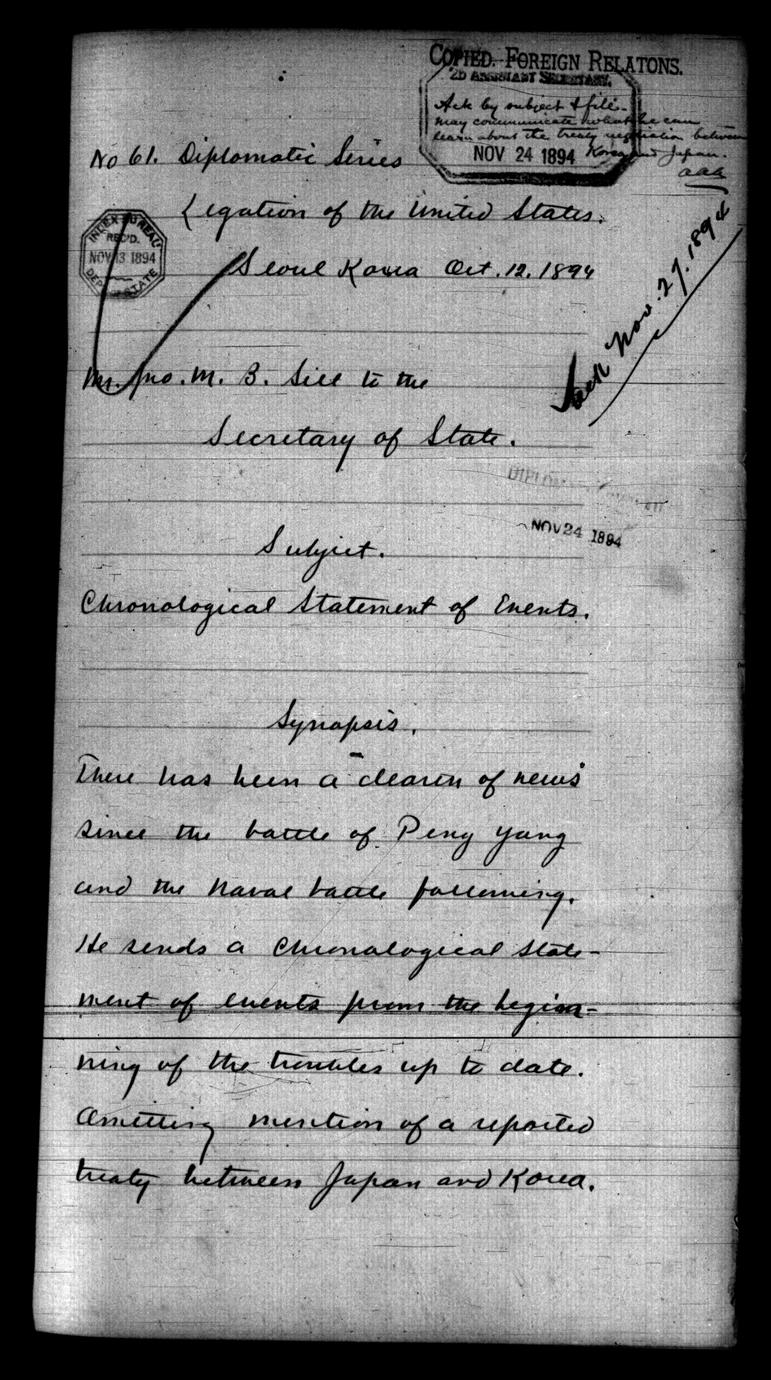 COPIED. FOREIGN RELATONS.
2D ASSISTANT SECRETARY.
Ack by subject & file.
may communicate what he can
learn about the treaty negotiation between
Korea and Japan.
NOV 24 1894
aaa
No 61. Diplomatic Series
Legation of the United States.
INDEX BUREAU
REC'D.
NOV 13 1894
DEPT. STATE
Seoul Korea Oct. 12. 1894
Ack Nov. 27. 1894
Mr. Jno. M. B. Sill to the
Secretary of State.
NOV 24 1894
Subject.
Chronological Statement of Events.
Synopsis.
There has been a dearth of news
since the battle of Peng Yang
and the Naval battle following.
He sends a Chronological State-
ment of events from the begin-
ning of the troubles up to date.
Omitting mention of a reported
treaty between Japan and Korea.